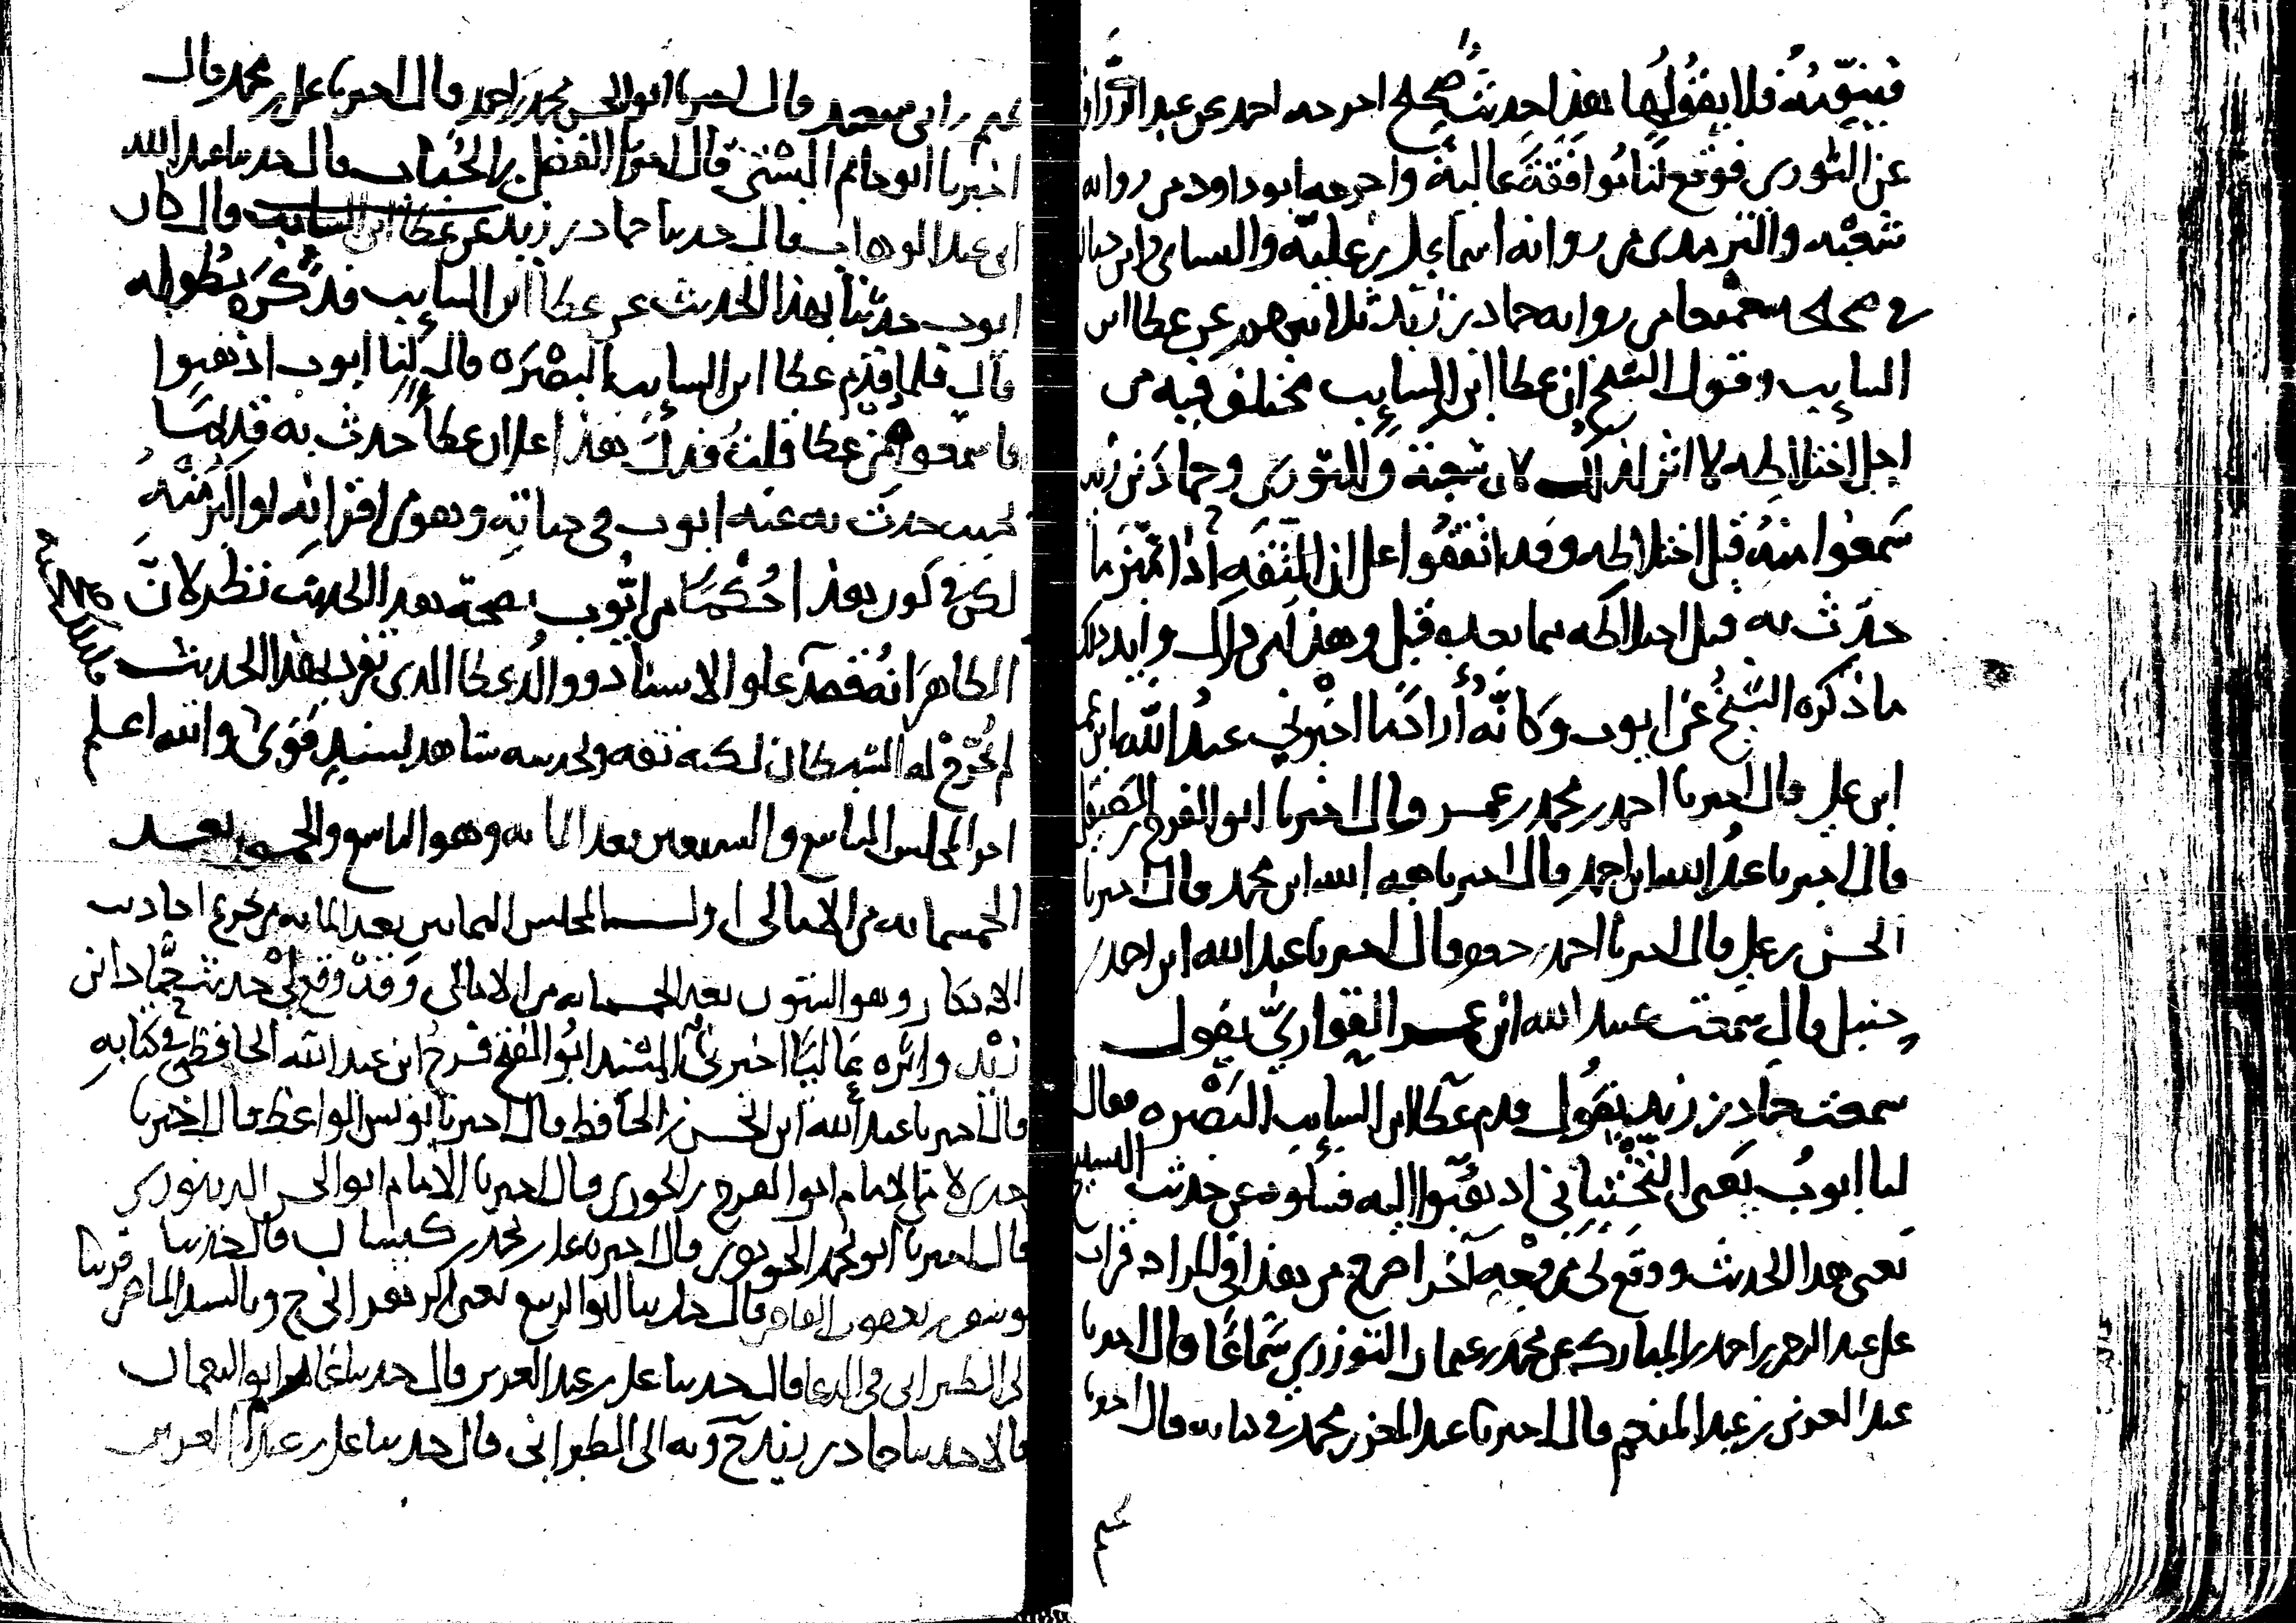 فينومه فلا يقولها هذا حديث صحيح اخرجه احمد عن عبد الرزاق
عن الثوري فوقع لنا موافقة عالية واخرجه ابو داود من رواية
شعبة والترمذي من رواية اسماعيل بن علية والنسائي وابن حبان
في صحيحه جميعا من رواية حماد بن زيد ثلاثتهم عن عطا ابن
السايب وقول الشيخ ان عطا ابن السايب مختلف فيه من
اجل اختلاطه لا اثر لذلك لان شعبة والثوري وحماد بن زيد
سمعوا منه قبل اختلاطه وقد اتفقوا على ان الثقة اذا تميز ما
حدث به قبل اختلاطه مما بعده قبل وهذا من ذاك وايد ذلك
ما ذكره الشيخ عن ايوب وكانه أراد ما اخبرني عبد الله ابن عمر
ابن علي قال اخبرنا احمد بن محمد بن عمر قال اخبرنا ابو الفرج بن الصيقل
قال اخبرنا عبد الله ابن احمد قال اخبرنا هبة الله ابن محمد قال اخبرنا
الحسن بن علي قال اخبرنا احمد بن جعفر قال اخبرنا عبد الله ابن احمد بن
حنبل قال سمعت عبيد الله ابن عمر القواريري يقول
سمعت حماد بن زيد يقول قدم عطا ابن السايب البصرة فقال
لنا ايوب يعني السختياني اذهبوا اليه فسلوه عن حديث التسبيح
يعني هذا الحديث ووقع لي من وجه آخر اصرح من هذا في المراد قرات
على عبد الرحمن بن احمد بن المبارك عن محمد بن عثمان التوزري سماعا قال اخبرنا
عبد العزيز بن عبد المنعم قال اخبرنا عبد المعز بن محمد في كتابه قال اخبرنا
تميم
تميم بن ابي سعيد قال اخبرنا ابو الحسن محمد بن احمد قال اخبرنا علي بن محمد قال
اخبرنا ابو حاتم البستي قال اخبرنا الفضل بن الحباب قال حدثنا عبد الله
ابن عبد الوهاب قال حدثنا حماد بن زيد عن عطا ابن السايب قال كان
ايوب حدثنا بهذا الحديث عن عطا ابن السايب فذكره بطوله
قال فلما قدم عطا ابن السايب البصرة قال لنا ايوب اذهبوا
فاسمعوا من عطا قلت فدل هذا على ان عطا حدث به قديما
بحيث حدث به عنه ايوب في حياته وهو من اقرانه او اكبر منه
لكن في كون هذا حكما من ايوب بصحة هذا الحديث نظر لان
الظاهر انه قصد علو الاسناد ووالد عطا الذي تفرد بهذا الحديث
لم يخرج له الشيخان لكنه ثقة ولحديثه شاهد بسند قوي والله اعلم
اخر المجلس التاسع والسبعين بعد الماية وهو التاسع والخمسين بعد
الخمسماية من الامالي اول المجلس الثمانين بعد الماية من تخريج احاديث
الاذكار وهو الستون بعد الخمسماية من الامالي وقد وقع لي حديث حماد ابن
زيد واثره عاليا اخبرني المسند ابو الفتح فرج ابن عبد الله الحافظي في كتابه
قال اخبرنا عبد الله ابن الحسن بن الحافظ قال اخبرنا يونس الواعظ قال اخبرنا
جدي لامي الامام ابو الفرج بن الجوزي قال اخبرنا الامام ابو الحسن الدينوري
قال اخبرنا ابو محمد الجوهري قال اخبرنا علي بن محمد بن كيسان قال حدثنا
يوسف بن يعقوب القاضي قال حدثنا ابو الربيع يعني الزهراني ح وبالسند الماضي قريبا
الى الطبراني في الدعا قال حدثنا علي بن عبد العزيز قال حدثنا عارم ابو النعمان
قالا حدثنا حماد بن زيد ح وبه الى الطبراني قال حدثنا علي بن عبد العزيز